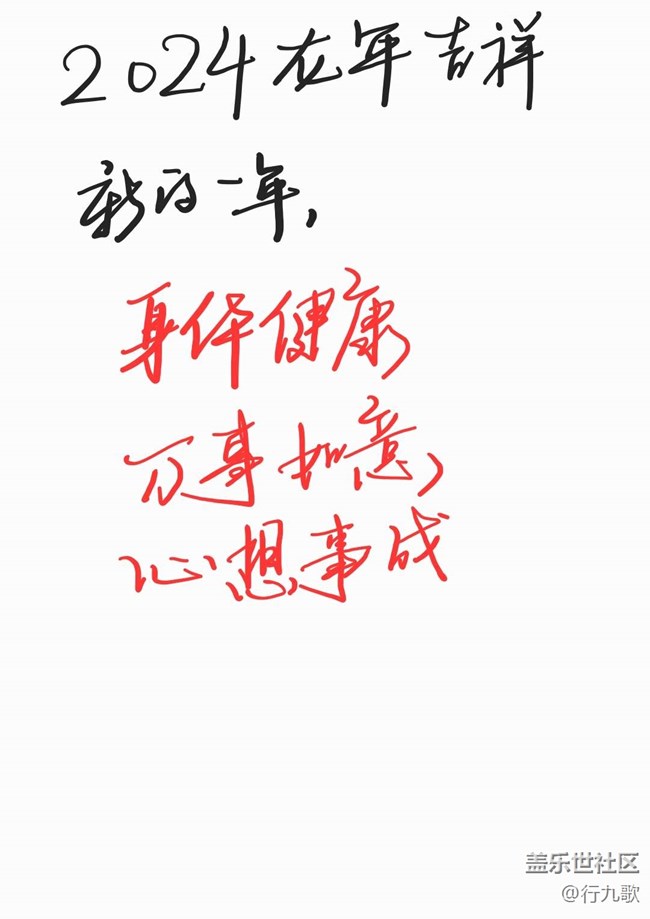 2024龙年吉祥
新的一年,
身体健康
万事如意,
心想事成
盖乐世社区
@行九歌